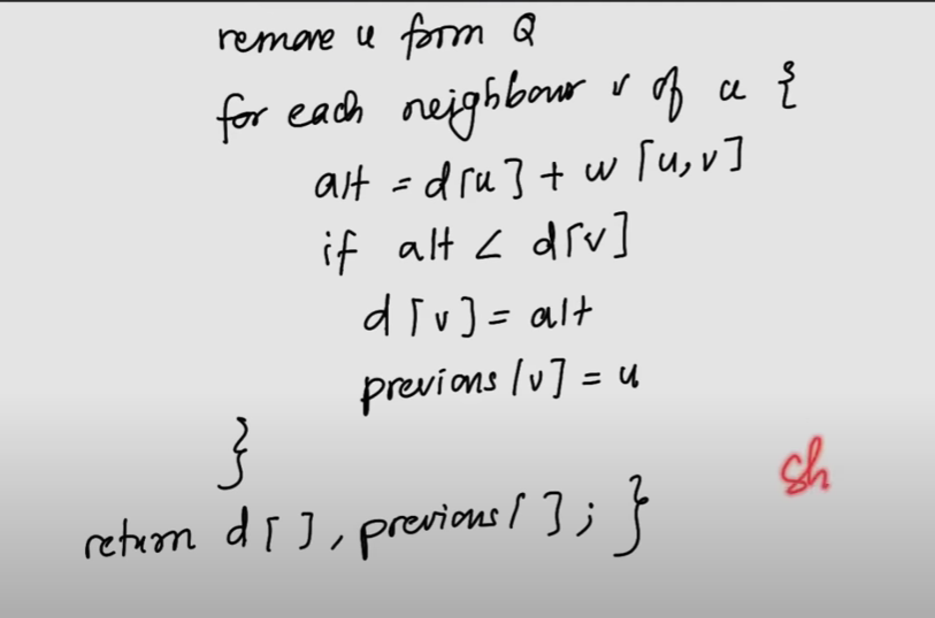 remove u form Q
for each neighbour v of u {
alt = d[u] + w [u,v]
if alt < d[v]
d[v] = alt
previous[v] = u
}
return d[ ], previous[ ]; }
sh